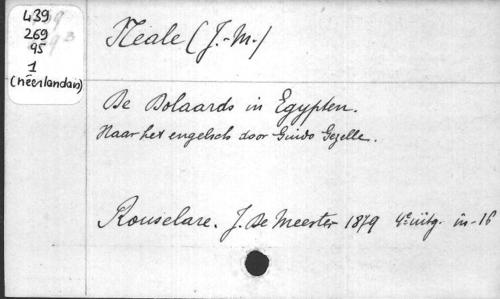 439
269
95
1
(néerlandais)
Neale (J.-M.)
De Dolaards in Egypten.
Naar het engelsch door Guido Gezelle.
Rouselare. J. De Meester 1879 4e uitg. in-16